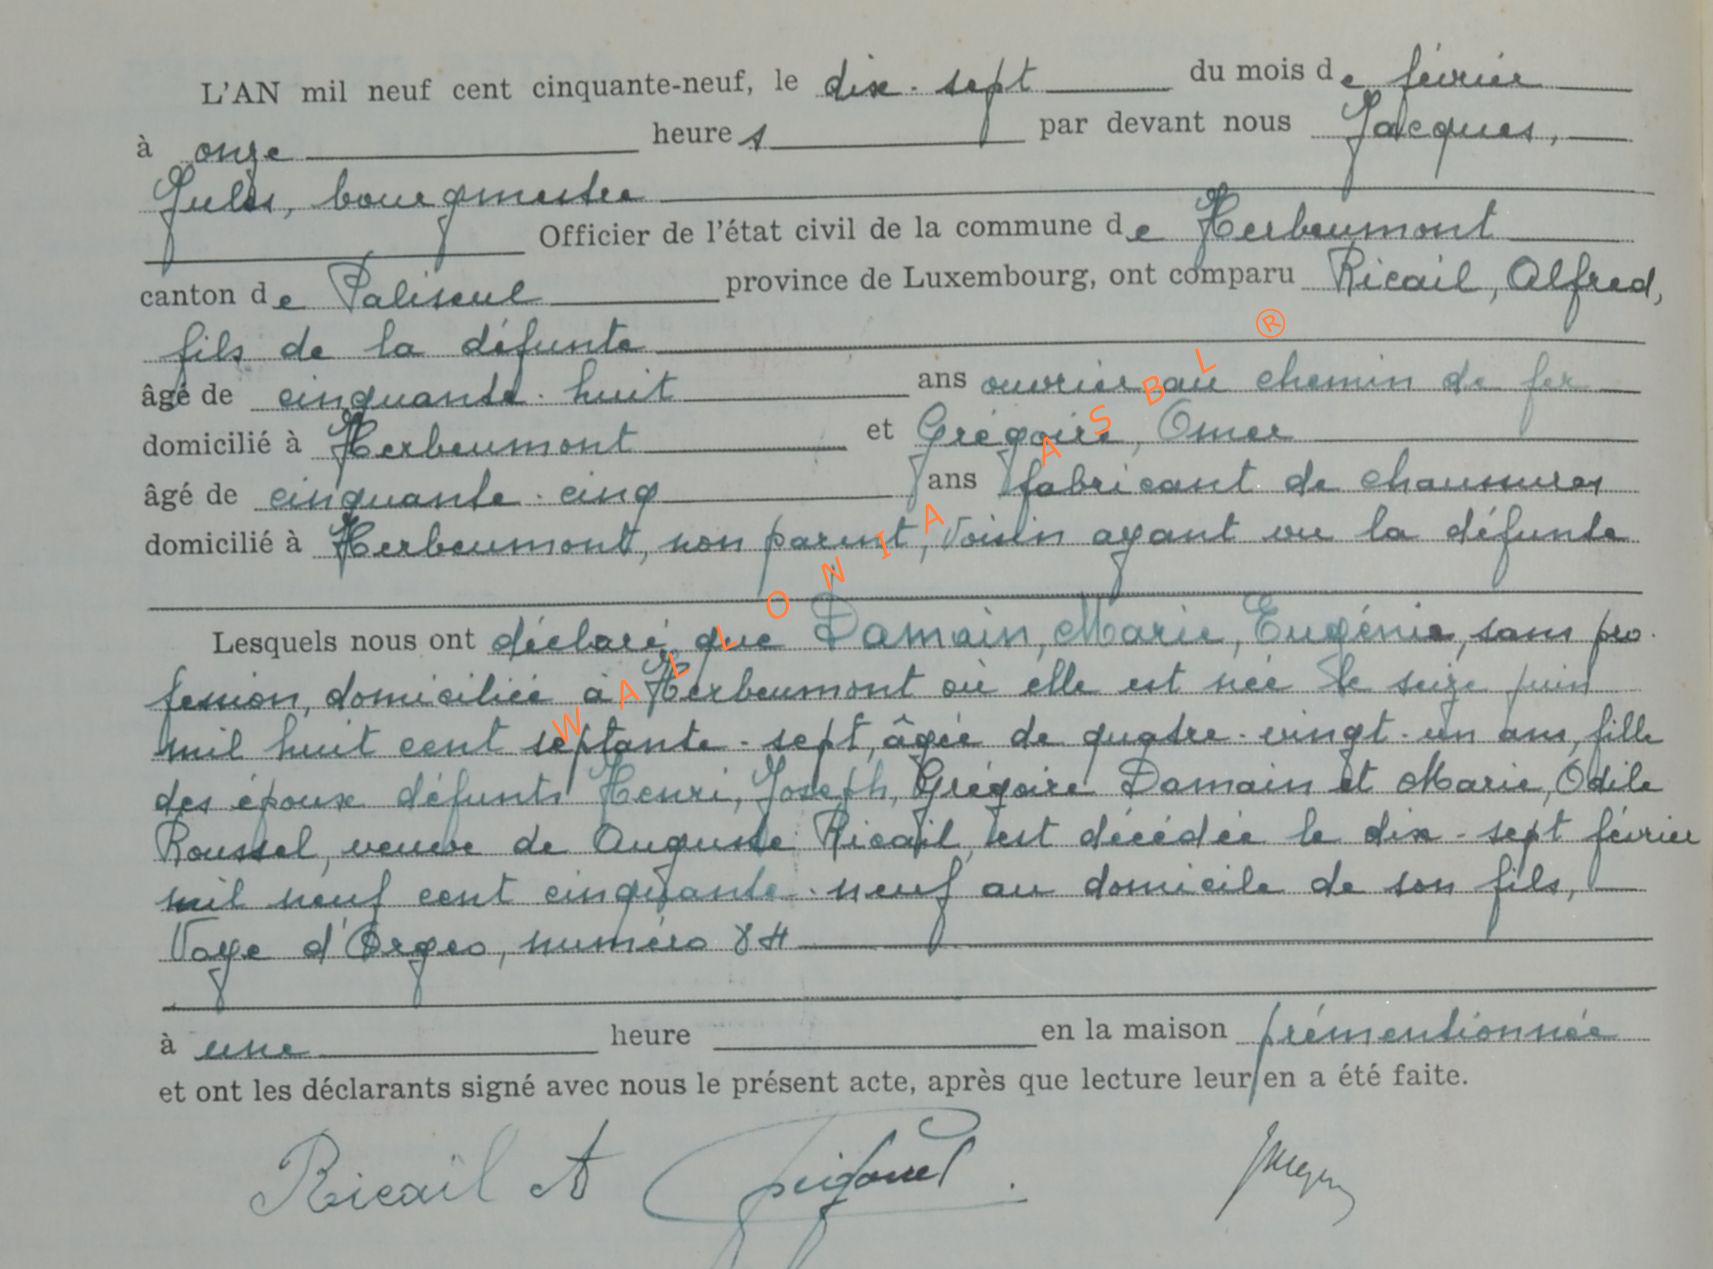 L'AN mil neuf cent cinquante-neuf, le dix-sept du mois de février
à onze heures par devant nous Jacques,
Jules, bourgmestre
Officier de l'état civil de la commune de Herbeumont
canton de Paliseul province de Luxembourg, ont comparu Ricail, Alfred,
fils de la défunte
âgé de cinquante-huit ans ouvrier au chemin de fer
domicilié à Herbeumont et Grégoire, Omer
âgé de cinquante-cinq ans fabricant de chaussures
domicilié à Herbeumont, non parent, voisin ayant vu la défunte
Lesquels nous ont déclaré que Damain, Marie, Eugénie, sans pro-
fession, domiciliée à Herbeumont où elle est née le seize juin
mil huit cent septante-sept, âgée de quatre-vingt-un ans, fille
des époux défunts Henri, Joseph, Grégoire Damain et Marie, Odile
Roussel, veuve de Auguste Ricail, est décédée le dix-sept février
mil neuf cent cinquante-neuf au domicile de son fils,
Voye d'Orgeo, numéro 84
à une heure en la maison prémentionnée
et ont les déclarants signé avec nous le présent acte, après que lecture leur en a été faite.
Ricail A Jacques
WALLONIA ASBL ®